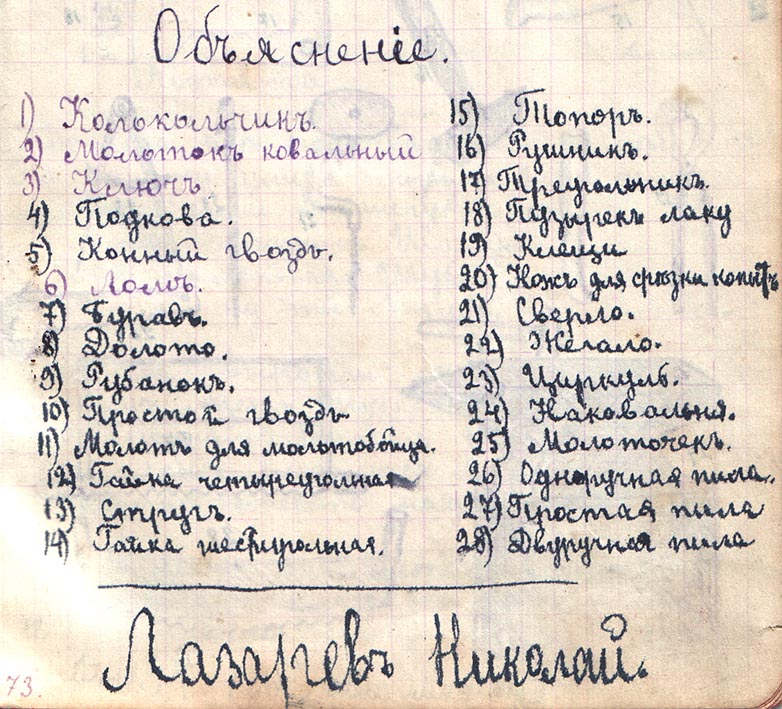 Объясненіе.
1) Колокольчикъ.
2) Молотокъ ковальный
3) Ключъ
4) Подкова.
5) Конный гвоздь.
6) Ломъ.
7) Буравъ.
8) Долото.
9) Рубанокъ.
10) Простой гвоздь
11) Молотъ для молотобойца.
12) Гайка четыреугольная
13) Стругъ.
14) Гайка шестиугольная.
15) Топоръ.
16) Рушникъ.
17) Треугольникъ.
18) Пузырекъ лаку
19) Клещи
20) Ножъ для срѣзки копытъ
21) Сверло.
22) Жегало.
23) Циркуль.
24) Наковальня.
25) Молоточекъ.
26) Одноручная пила.
27) Простая пила
28) Двуручная пила
Лазаревъ Николай.
73.